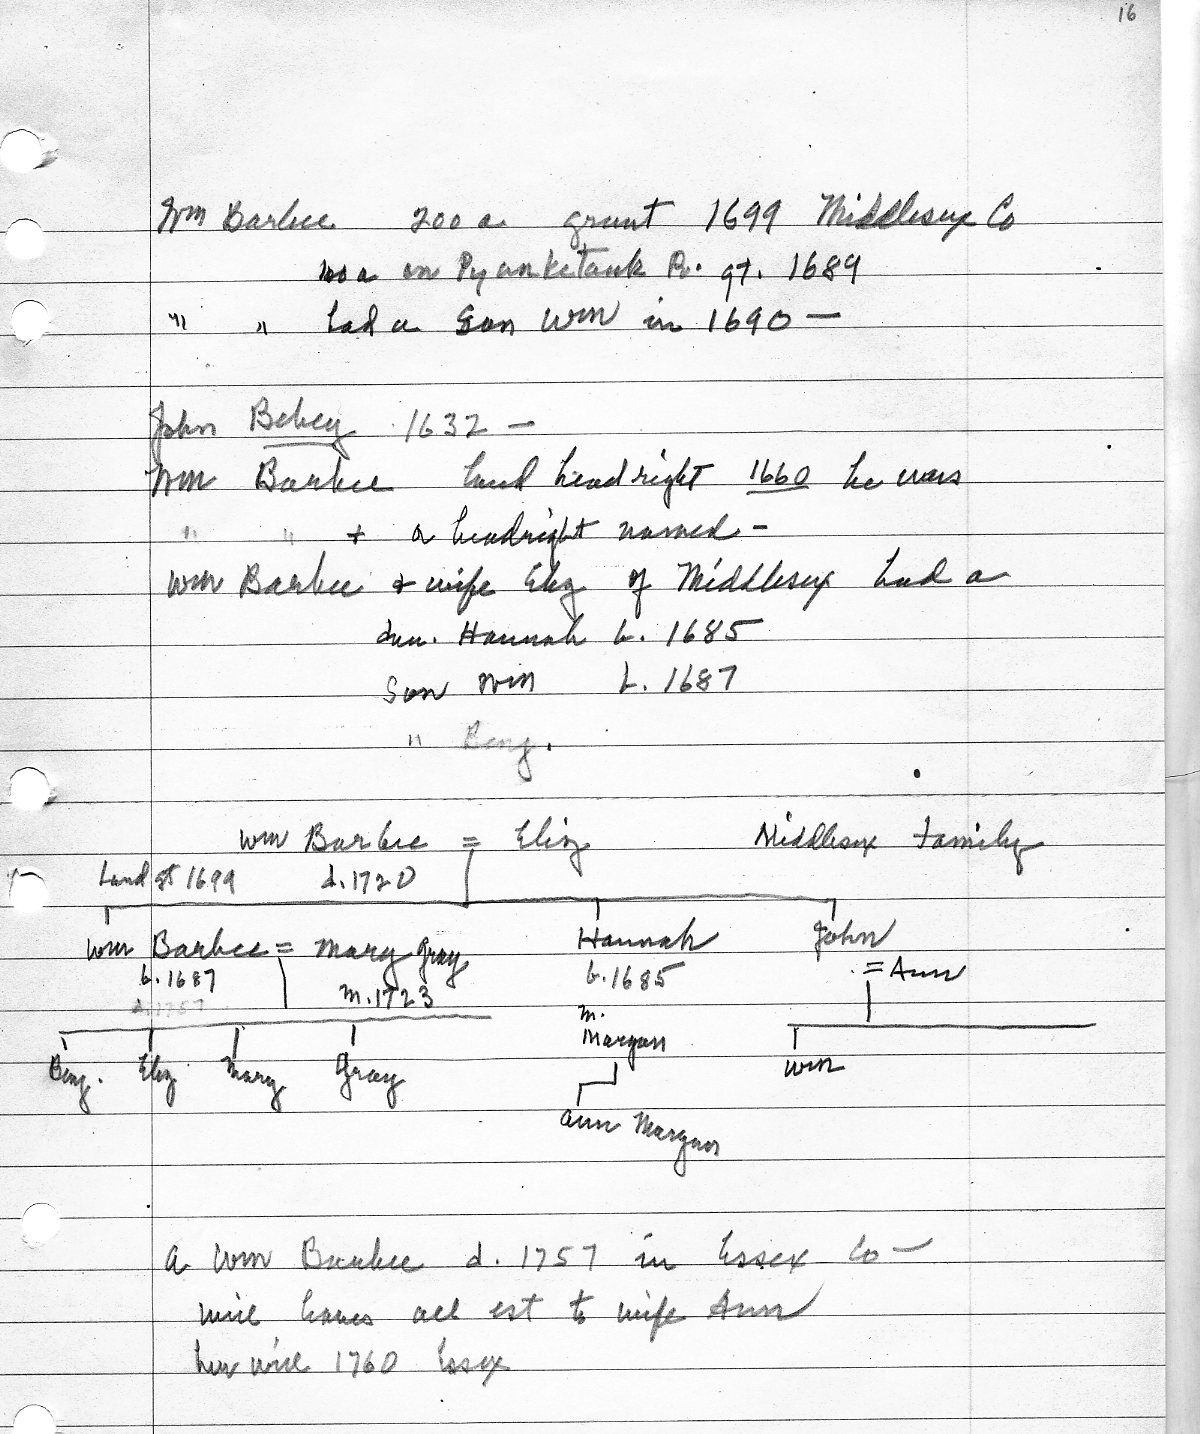 16
Wm Barbee 200 a grant 1699 Middlesex Co
100 a on Pyanketank R. gt. 1689
" " had a son Wm in 1690 —
John Bebey 1632 —
Wm Barbee land headright 1660 he was
" " + a headright named -
Wm Barbee & wife Eliz of Middlesex had a
dau. Hannah b. 1685
Son Wm b. 1687
" Benj.
Wm Barbee = Eliz Middlesex Family
Land gt 1699 d. 1720
Wm Barbee = Mary Gray Hannah John
b. 1687 m. 1723 b. 1685 = Ann
d. 1757 m.
Morgan
Benj. Eliz Mary Gray Wm
Ann Morgan
A Wm Barbee d. 1757 in Essex Co —
will leaves all est to wife Ann
her will 1760 Essex